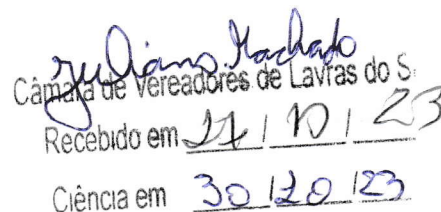 Juliano Machado
Câmara de Vereadores de Lavras do S.
Recebido em 27 / 10 / 23
Ciência em 30 / 10 / 23